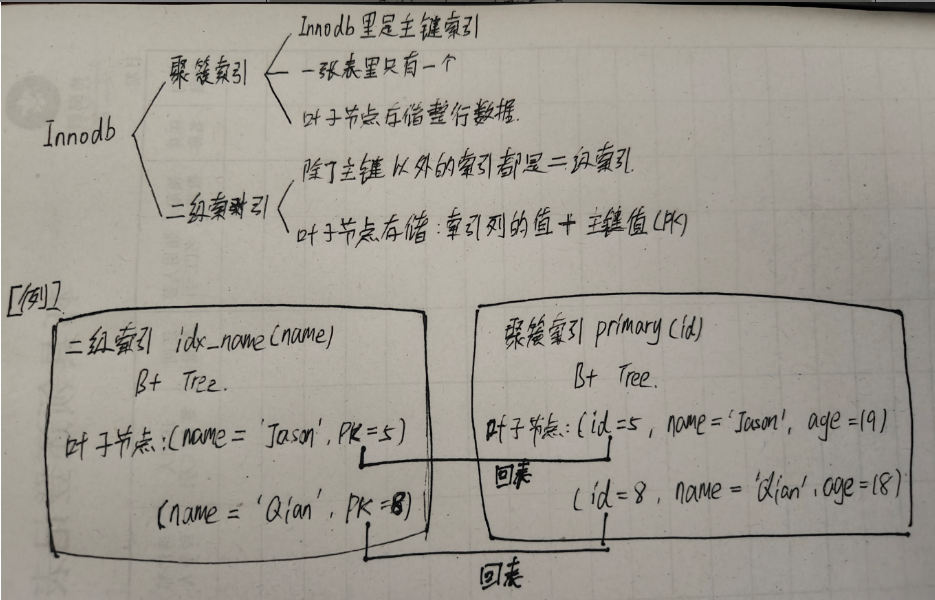 Innodb
聚簇索引
Innodb里是主键索引
一张表里只有一个
叶子节点存储整行数据.
二级索引
除了主键以外的索引都是二级索引.
叶子节点存储:索引列的值 + 主键值(PK)
[例]
二级索引 idx_name(name)
B+ Tree.
叶子节点:(name = 'Jason', PK=5)
(name = 'Qian', PK=8)
聚簇索引 primary(id)
B+ Tree.
叶子节点:(id=5, name='Jason', age=19)
(id=8, name = 'Qian', age=18)
回表
回表